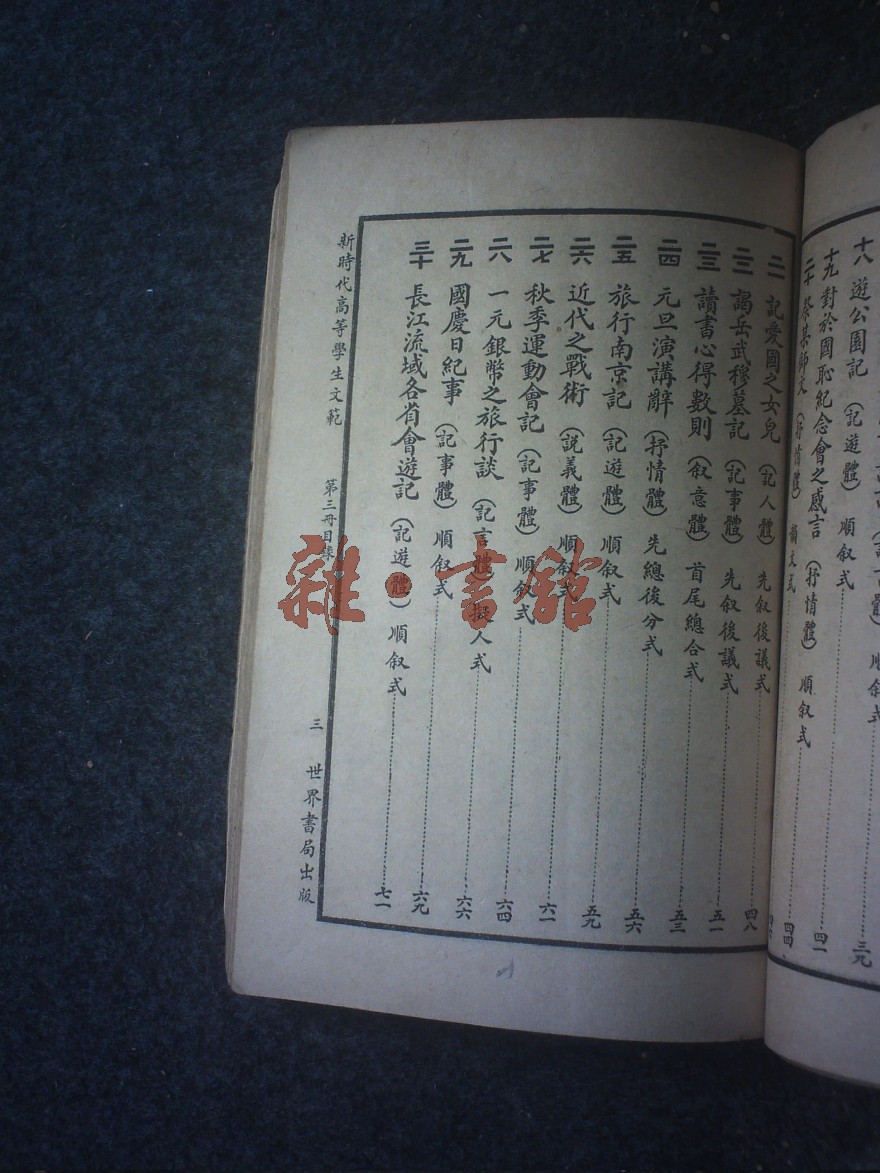 十八 遊公園記 (記遊體) 順叙式 三九
十九 對於國恥紀念會之感言 (抒情體) 順叙式 四一
二十 祭某師文 (抒情體) 韻文式 四四
二一 記愛國之女兒 (記人體) 先叙後議式
二二 謁岳武穆墓記 (記事體) 先叙後議式 四八
二三 讀書心得數則 (叙意體) 首尾總合式 五一
二四 元旦演講辭 (抒情體) 先總後分式 五三
二五 旅行南京記 (記遊體) 順叙式 五六
二六 近代之戰術 (說義體) 順叙式 五九
二七 秋季運動會記 (記事體) 順叙式 六一
二八 一元銀幣之旅行談 (記言體) 擬人式 六四
二九 國慶日紀事 (記事體) 順叙式 六六
三十 長江流域各省會遊記 (記遊體) 順叙式 六九
七一
新時代高等學生文範 第三冊目錄 三 世界書局出版
雜·書館